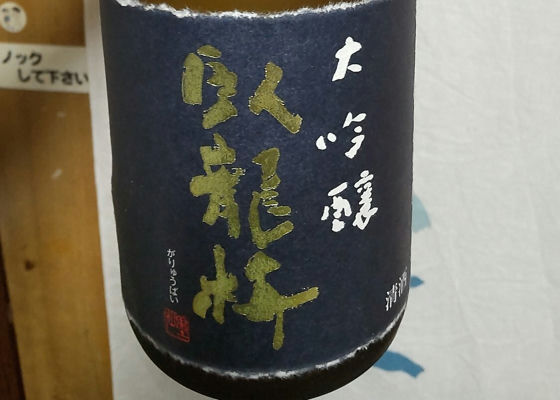 大吟醸
臥龍梅
がりゅうばい
清酒
ノック
して下さい